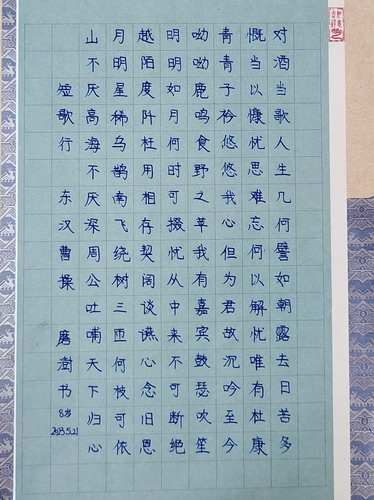 对酒当歌人生几何譬如朝露去日苦多
慨当以慷忧思难忘何以解忧唯有杜康
青青子衿悠悠我心但为君故沉吟至今
呦呦鹿鸣食野之苹我有嘉宾鼓瑟吹笙
明明如月何时可掇忧从中来不可断绝
越陌度阡枉用相存契阔谈䜩心念旧恩
月明星稀乌鹊南飞绕树三匝何枝可依
山不厌高海不厌深周公吐哺天下归心
短歌行 东汉曹操 磨澍书 8岁
2023.5.21